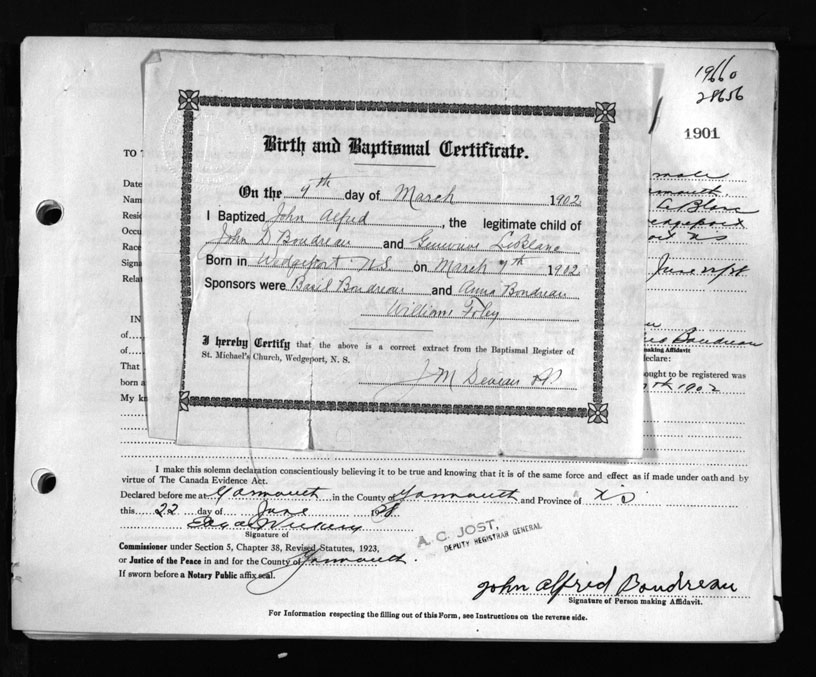 19660
28656
1901
Birth and Baptismal Certificate.
On the 7th day of March 1902
I Baptized John Alfred, the legitimate child of
John D Boudreau and Genevieve LeBlanc
Born in Wedgeport N.S. on March 7th 1902
Sponsors were Basil Boudreau and Anna Boudreau
William Foley
I hereby Certify that the above is a correct extract from the Baptismal Register of
St. Michael's Church, Wedgeport, N. S.
TO
Date
Name
Resid
Occu
Race
Signa
Rela
IN
of
of
That
born a
My kn
male
Le Blanc
June
Boudreau
making Affidavit
declare:
ought to be registered was
7th 1902
I make this solemn declaration conscientiously believing it to be true and knowing that it is of the same force and effect as if made under oath and by
virtue of The Canada Evidence Act.
Declared before me at Yarmouth in the County of Yarmouth and Province of N S
this 22 day of June 1928
Signature of
Commissioner under Section 5, Chapter 38, Revised Statutes, 1923,
or Justice of the Peace in and for the County of Yarmouth.
If sworn before a Notary Public affix seal.
A. C. JOST,
DEPUTY REGISTRAR GENERAL
John Alfred Boudreau
Signature of Person making Affidavit.
For Information respecting the filling out of this Form, see Instructions on the reverse side.